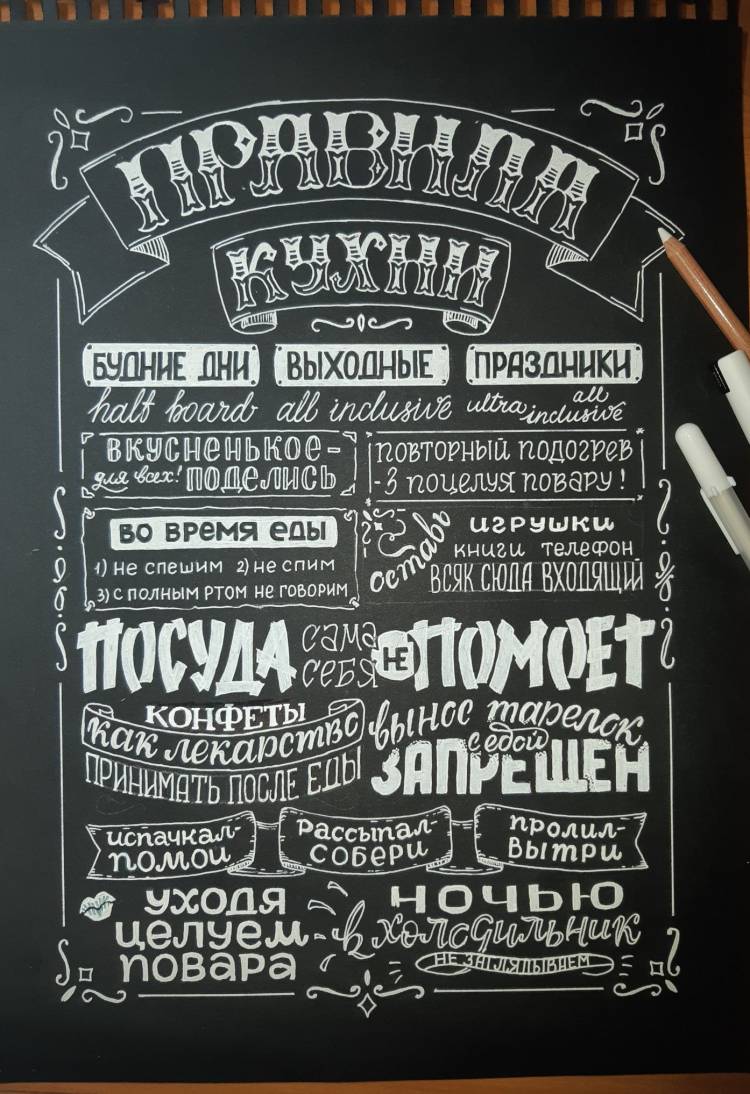 ПРАВИЛА
КУХНИ
БУДНИЕ ДНИ
half board
ВЫХОДНЫЕ
all inclusive
ПРАЗДНИКИ
ultra all inclusive
ВКУСНЕНЬКОЕ-
для всех! ПОДЕЛИСЬ
ПОВТОРНЫЙ ПОДОГРЕВ
-3 ПОЦЕЛУЯ ПОВАРУ!
ВО ВРЕМЯ ЕДЫ
1) НЕ СПЕШИМ 2) НЕ СПИМ
3) С ПОЛНЫМ РТОМ НЕ ГОВОРИМ
оставь
ИГРУШКИ
КНИГИ ТЕЛЕФОН
ВСЯК СЮДА ВХОДЯЩИЙ
ПОСУДА
САМА
СЕБЯ
НЕ
ПОМОЕТ
КОНФЕТЫ
КАК ЛЕКАРСТВО
ПРИНИМАТЬ ПОСЛЕ ЕДЫ
ВЫНОС ТАРЕЛОК
С ЕДОЙ
ЗАПРЕЩЕН
ИСПАЧКАЛ-
ПОМОЙ
РАССЫПАЛ-
СОБЕРИ
ПРОЛИЛ-
ВЫТРИ
УХОДЯ
ЦЕЛУЕМ
ПОВАРА
НОЧЬЮ
В ХОЛОДИЛЬНИК
НЕ ЗАГЛЯДЫВАЕМ